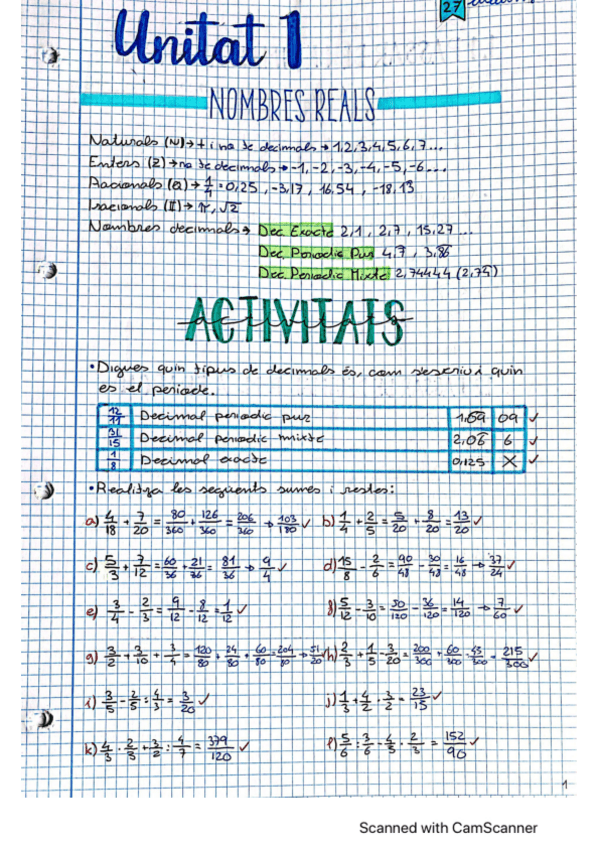 27
Unitat 1
NOMBRES REALS
Naturals (N) → + i no te decimals → 1,2,3,4,5,6,7...
Enters (Z) → no te decimals → -1, -2, -3, -4, -5, -6...
Racionals (Q) → 1/4 = 0,25, -3,17, 16,54, -18,13
Iracionals (I) → π, √2
Nombres decimals → Dec. Exacte 2,1, 2,7, 15,27...
Dec. Periodic Pur 4,7̅, 3,8̅6̅
Dec. Periodic Mixte 2,74444 (2,74̅)
ACTIVITATS
• Digues quin tipus de decimals és, com s'escriu i quin
es el periode.
12/11 Decimal periodic pur 1,0̅9̅ 09 ✓
31/15 Decimal periodic mixte 2,06̅ 6 ✓
1/8 Decimal exacte 0,125 X ✓
• Realitza les seguents sumes i restes:
a) 4/18 + 7/20 = 80/360 + 126/360 = 206/360 → 103/180 ✓ b) 1/4 + 2/5 = 5/20 + 8/20 = 13/20 ✓
c) 5/3 + 7/12 = 60/36 + 21/36 = 81/36 → 9/4 ✓ d) 15/8 - 2/6 = 90/48 - 30/48 = 16/48 → 37/24 ✓
e) 3/4 - 2/3 = 9/12 - 8/12 = 1/12 ✓ f) 5/12 - 3/10 = 50/120 - 36/120 = 14/120 → 7/60 ✓
g) 3/2 + 3/10 + 3/4 = 120/80 + 24/80 + 60/80 = 204/80 → 51/20 ✓ h) 2/3 + 1/5 - 3/20 = 200/300 + 60/300 - 45/300 = 215/300 ✓
i) 3/5 - 2/5 : 4/3 = 3/20 ✓ j) 1/3 + 4/2 · 3/2 = 23/15 ✓
k) 4/3 · 2/5 + 3/2 : 4/7 = 379/120 ✓ l) 5/6 : 3/6 + 4/5 · 2/3 = 152/90 ✓
1
Scanned with CamScanner